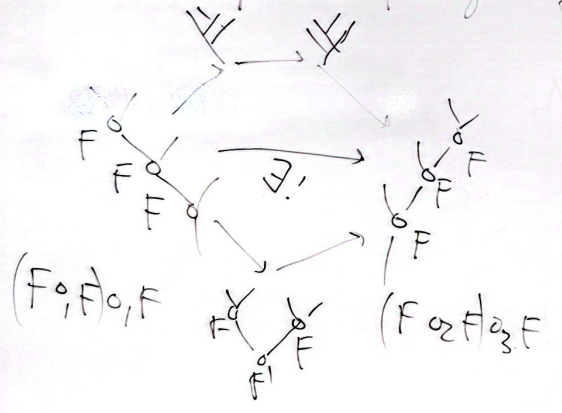 F
F
F
∃!
F
F
F
(F o₁ F) o₁ F
F
F
F'
(F o₂ F) o₃ F